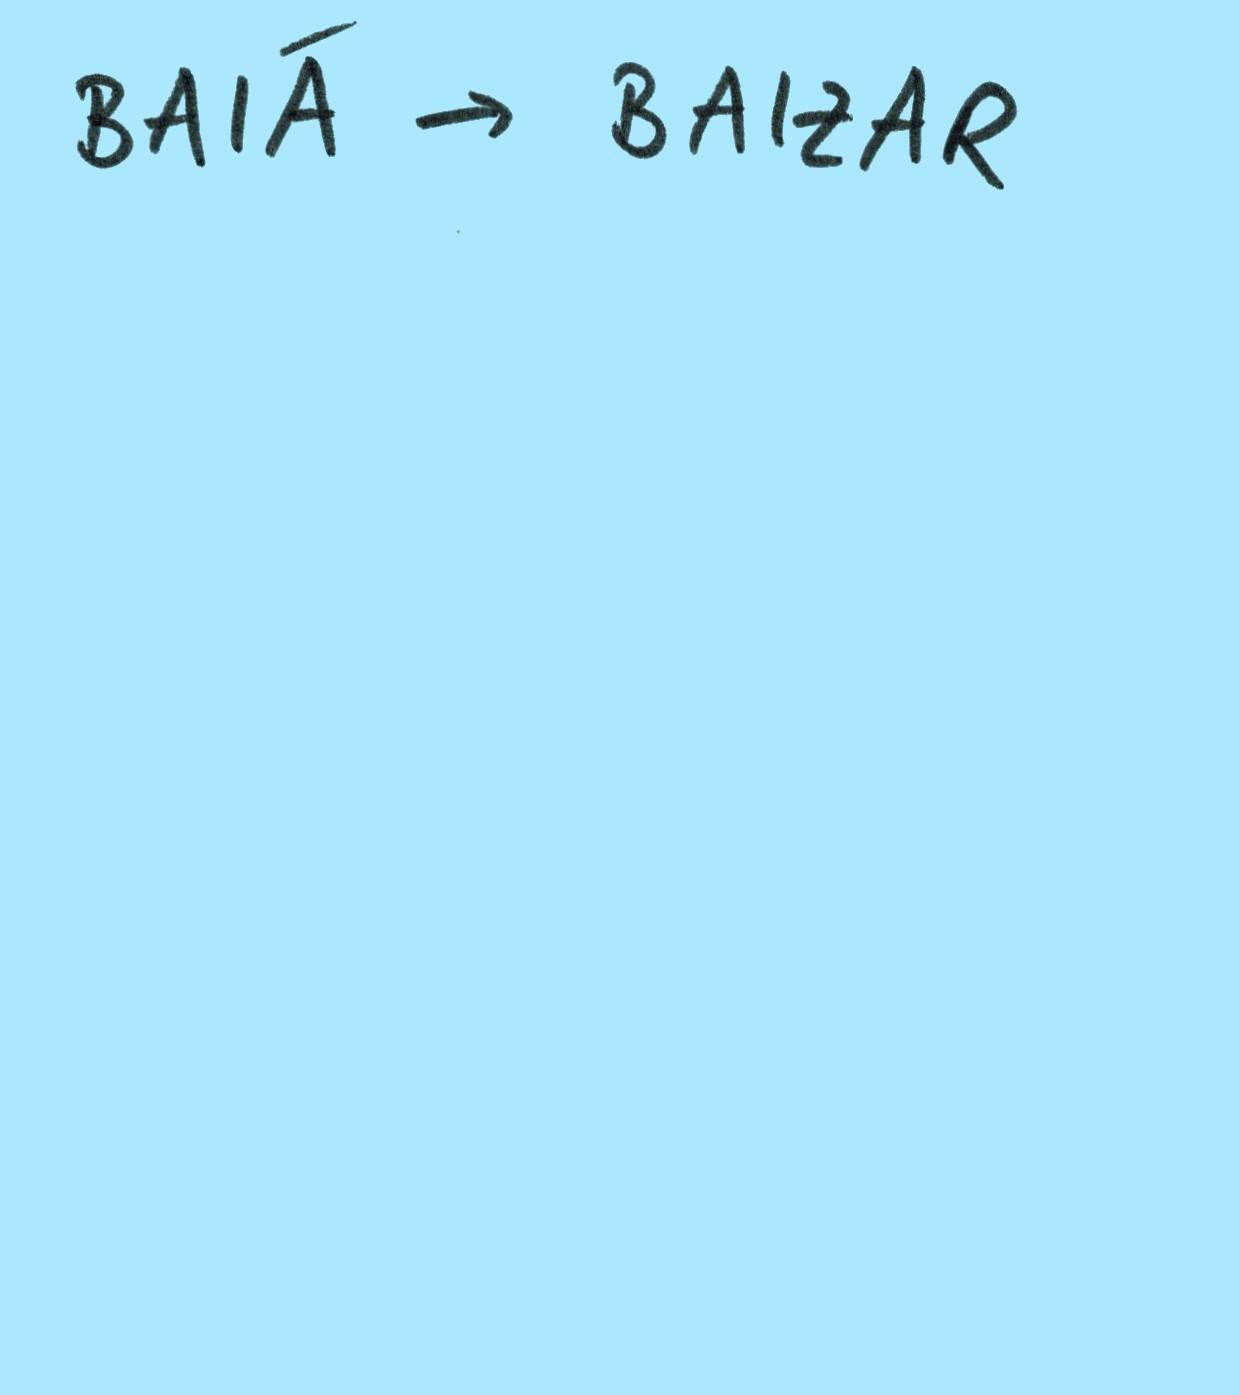 BAIÁ → BAIZAR